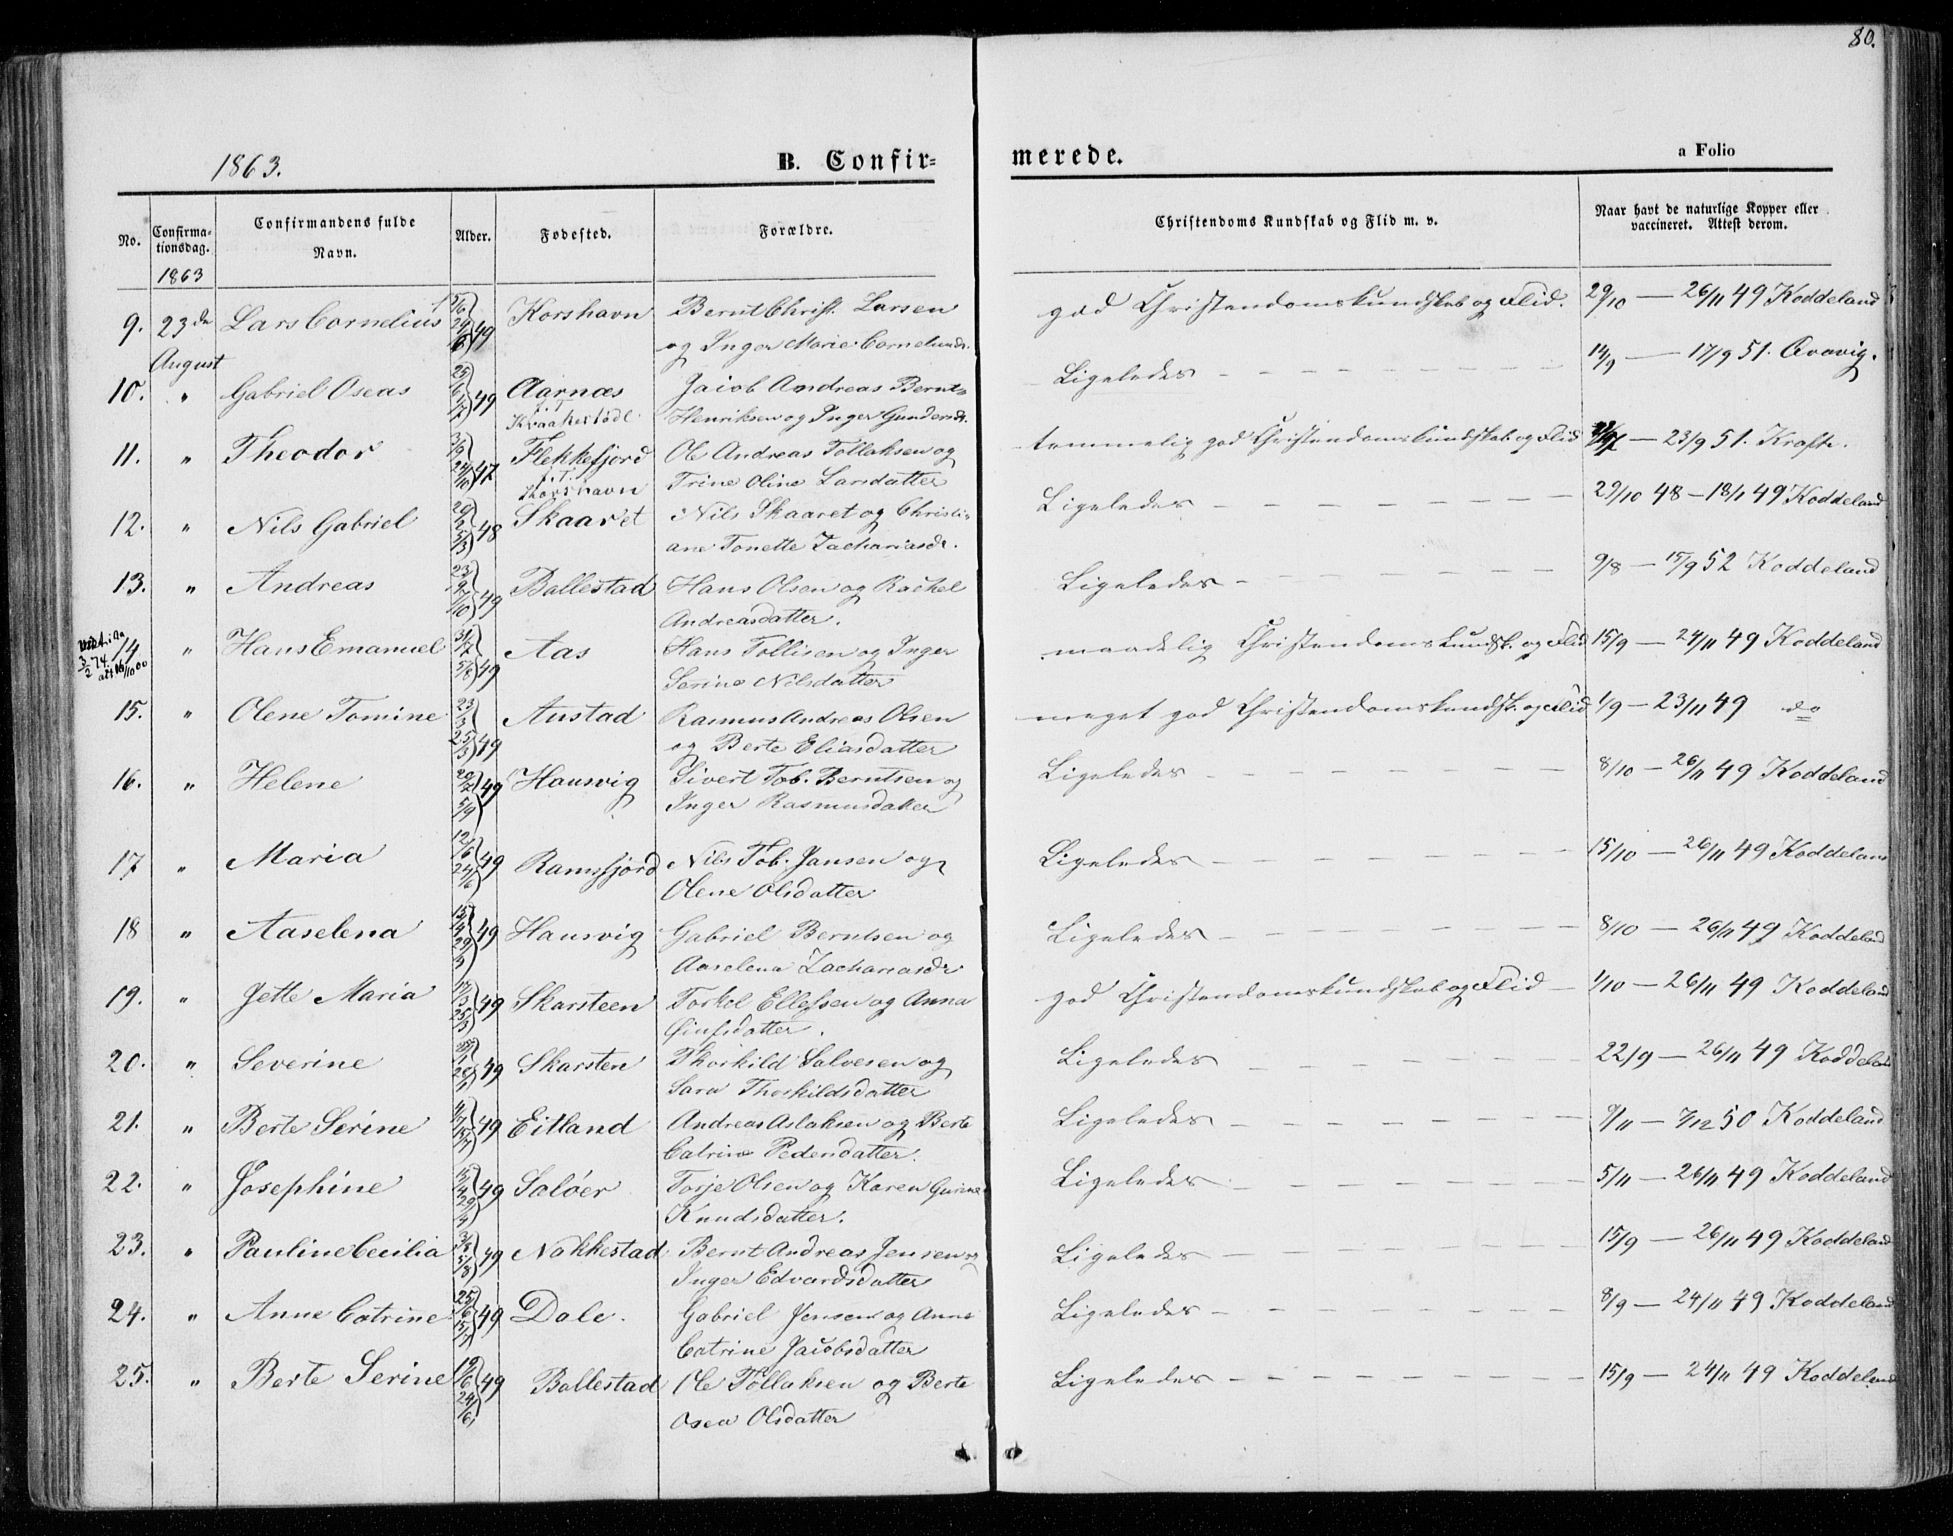 80.
1863.
B. Confir=
merede.
a Folio
No.
Confirma-
tionsdag.
Confirmandens fulde
Navn.
Alder.
Fødested.
Forældre.
Christendoms Kundskab og Flid m. v.
Naar havt de naturlige Kopper eller
vaccineret. Attest derom.
1863
9. 23de Lars Cornelius 15/6 24/6 49 Korshavn Bernt Christ. Larsen god Christendomskundskab og Flid. 29/10 — 26/11 49 Koddeland
August og Inger Marie Corneliusdr.
10. " Gabriel Oseas 49 Aarnæs Jacob Andreas Bernt= Ligeledes 14/9 — 17/9 51.
Henriksen og Inger Gundersdr.
11. " Theodor 47 Flekkefjord Ole Andreas Tollaksen og temmelig god Christendomskundskab og Flid — 23/9 51. Krafte.
Korshavn Trine Oline Larsdatter
12. " Nils Gabriel 48 Skaaret Nils Skaaret og Christi= Ligeledes 29/10 48 — 18/1 49 Koddeland
ane Tonette Zachariasdr.
13. " Andreas 49 Ballestad Hans Olsen og Rachel Ligeledes 9/8 — 15/9 52 Koddeland
Andreasdatter.
14 " Hans Emanuel 31/7 5/8 49 Aas Hans Tollisen og Inger maadelig Christendomskundsk. og Flid 15/9 — 24/11 49 Koddeland
3/2 74.
Serine Nilsdatter
15. " Olene Tomine 23/3 25/3 49 Austad Rasmus Andreas Olsen meget god Christendomskundsk. og Flid 1/9 — 23/11 49 do
og Berte Eliasdatter
16. " Helene 49 Hausvig Sivert Tob. Berntsen og Ligeledes 8/10 — 26/11 49 Koddeland
Inger Rasmusdatter
17 " Maria 12/6 24/6 49 Ramsfjord Nils Tob. Jansen og Ligeledes 15/10 — 26/11 49 Koddeland
Olene Olsdatter
18 " Aaselena 49 Hausvig Gabriel Berntsen og Ligeledes 8/10 — 26/11 49 Koddeland
Aaselena Zachariasdr
19. " Jette Maria 49 Skarsteen Torkel Ellefsen og Anna god Christendomskundskab og Flid 1/10 — 26/11 49 Koddeland
20. " Severine 49 Skarsten Thorkild Salvesen og Ligeledes 22/9 — 26/11 49 Koddeland
Sara Thorkildsdatter
21. " Berte Serine 49 Eitland Andreas Aslaksen og Berte Ligeledes 50 Koddeland
Catrine Pedersdatter.
22. " Josephine 49 Saløer Torje Olsen og Karen Gurine Ligeledes 5/11 — 26/11 49 Koddeland
Knudsdatter.
23. " Pauline Cecilia 49 Nakkestad Bernt Andreas Jensen og Ligeledes 15/9 — 26/11 49 Koddeland
Inger Edvardsdatter
24. " Anne Catrine 49 Dale. Gabriel Jensen og Anne Ligeledes 8/9 — 24/11 49 Koddeland
Catrine Jacobsdatter
25. " Berte Serine 49 Ballestad Ole Tollaksen og Berte Ligeledes 15/9 — 24/11 49 Koddeland
Osea Olsdatter